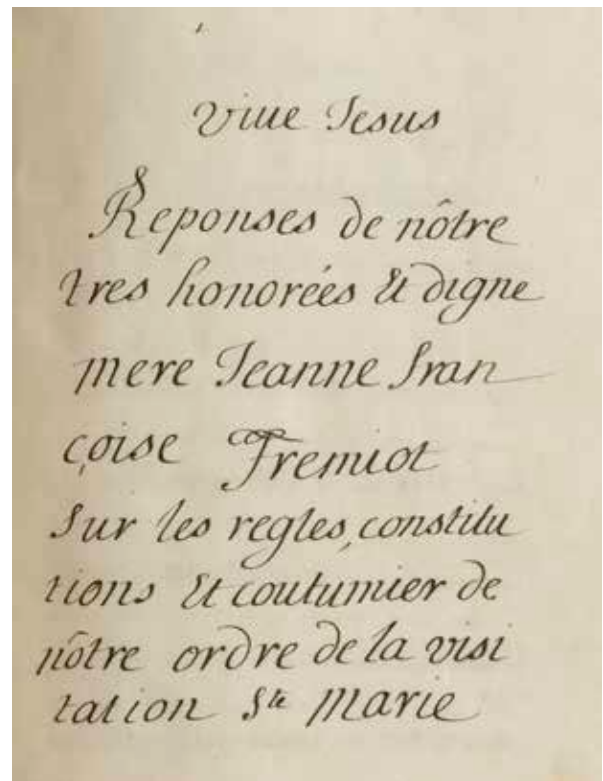 Viue Jesus
Reponses de nôtre
tres honorées Et digne
mere Jeanne Fran
çoise Fremiot
Sur les regles, constitu
tions Et coutumier de
nôtre ordre de la visi
tation Ste Marie